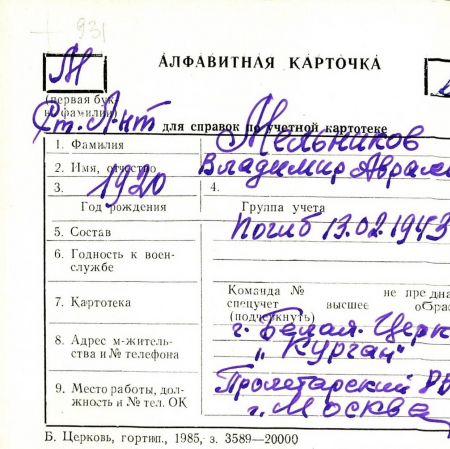 931
М
АЛФАВИТНАЯ КАРТОЧКА
(первая бук-
ва фамилии)
Ст. Л-нт для справок по учетной картотеке
1. Фамилия Мельников
2. Имя, отчество Владимир Аврам
3. 1920 4.
Год рождения Группа учета
5. Состав Погиб 13.02.1943
6. Годность к воен-
службе
7. Картотека Команда № не предна
спецучет высшее обра
(подчеркнуть)
8. Адрес м-житель-
ства и № телефона г. Белая-Церк
„Курган"
9. Место работы, дол-
жность и № тел. ОК Пролетарский РВ
г. Москва
Б. Церковь, гортип., 1985, з. 3589—20000